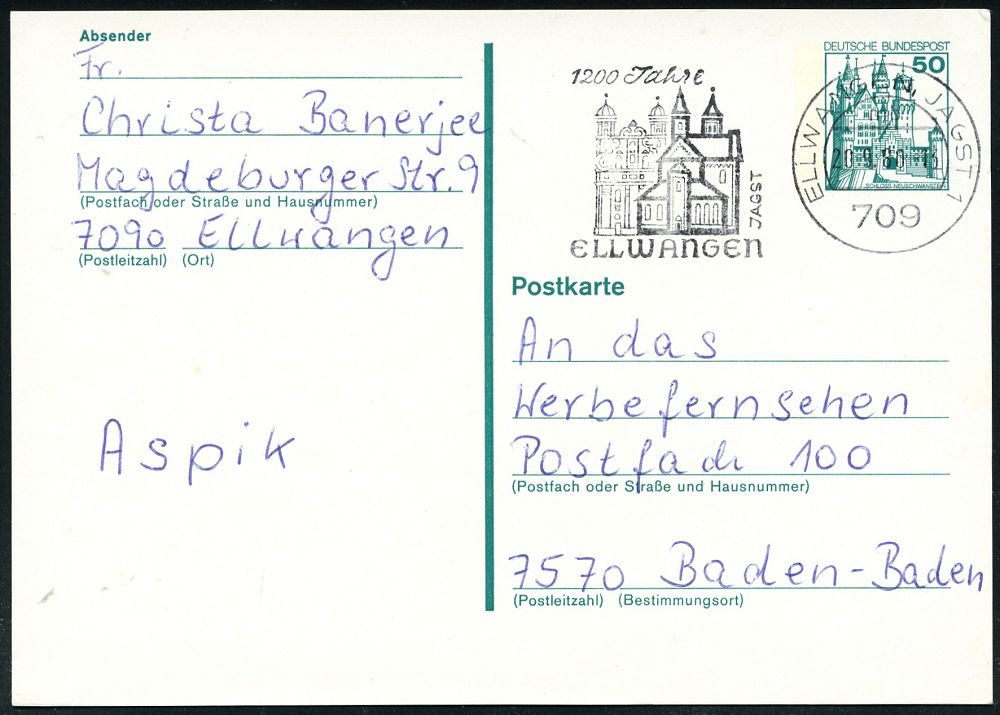 Absender
Fr.
Christa Banerjee
Magdeburger Str. 9
(Postfach oder Straße und Hausnummer)
7090 Ellwangen
(Postleitzahl) (Ort)
Aspik
1200 Jahre
ELLWANGEN
JAGST
DEUTSCHE BUNDESPOST
50
SCHLOSS NEUSCHWANSTEIN
ELLWANGEN, JAGST 1
709
Postkarte
An das
Werbefernsehen
Postfach 100
(Postfach oder Straße und Hausnummer)
7570 Baden-Baden
(Postleitzahl) (Bestimmungsort)